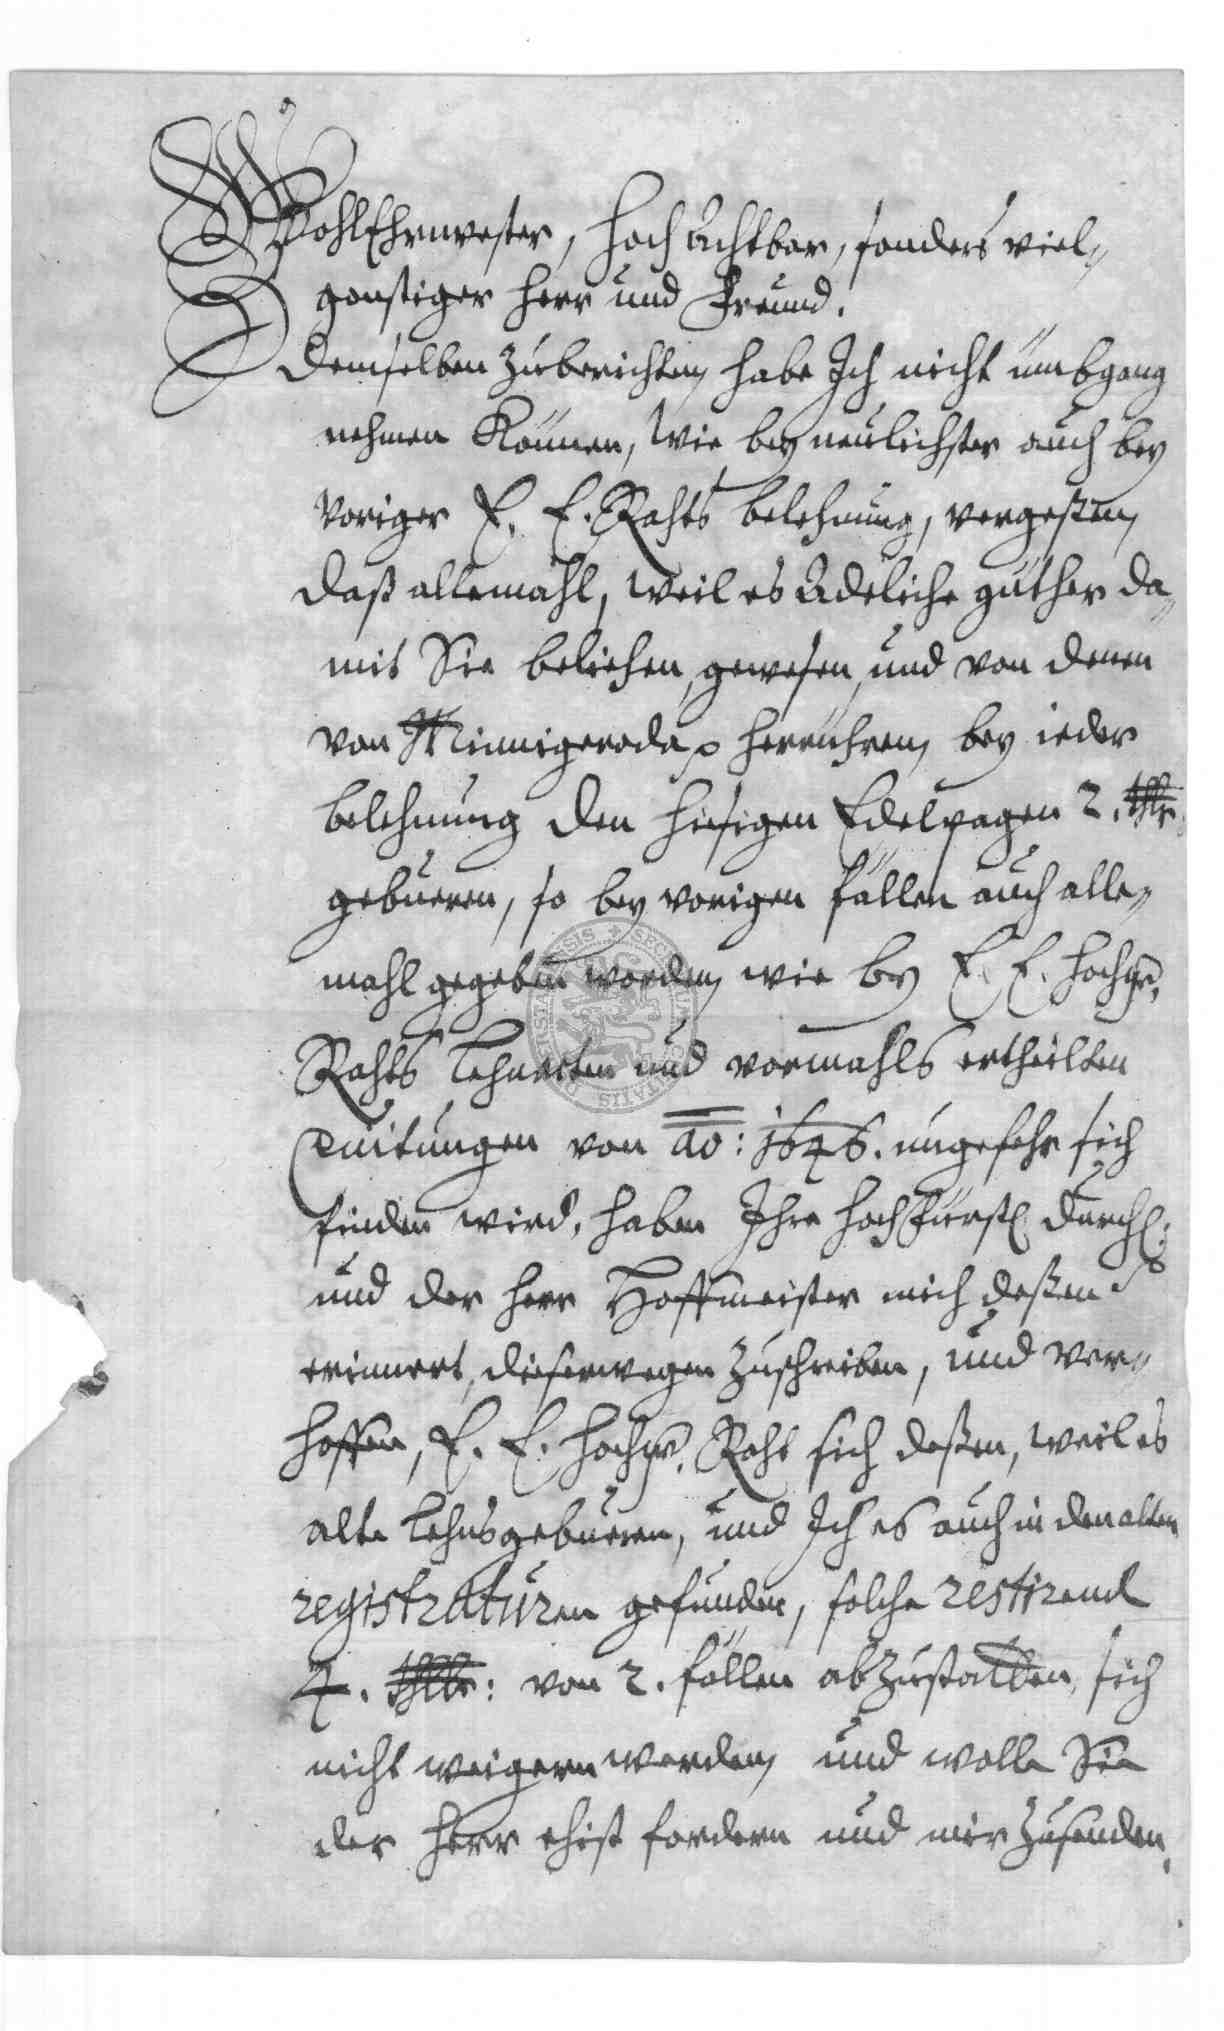 WohlEhrnvester, hoch Achtbar, sonders viel-
gonstiger herr und Freund.
Demselben zuberichten habe Ich nicht umbgang
nehmen Können, wie bey neulichster auch bey
voriger E. E. Rahts belehnung, vergeßen,
daß allemahl, weil es Adeliche güther da-
mit Sie beliehen, gewesen, und von denen
von Minnigeroda p herrühren, bey ieder
belehnung den hiesigen Edelpagen 2. thlr.
gebueren, so bey vorigen fällen auch alle-
mahl gegeben worden, wie bey E. E. hochw.
Rahts Lehnacten und vormahls ertheilten
Quitungen von ao: 1646. ungefehr sich
finden wird, haben Ihre hochfürstl. Durchl:
und der herr Hoffmeister mich deßen
erinnert, dieserwegen zuschreiben, und ver-
hoffen, E. E. hochw. Raht sich deßen, weil es
alte Lehnsgebueren, und Ich es auch in den alten
registraturen gefunden, solche restirend
4. thlr: von 2. fällen abzustatten, sich
nicht weigern werden, und wolle Sie
der herr ehist fordern und mir zusenden.